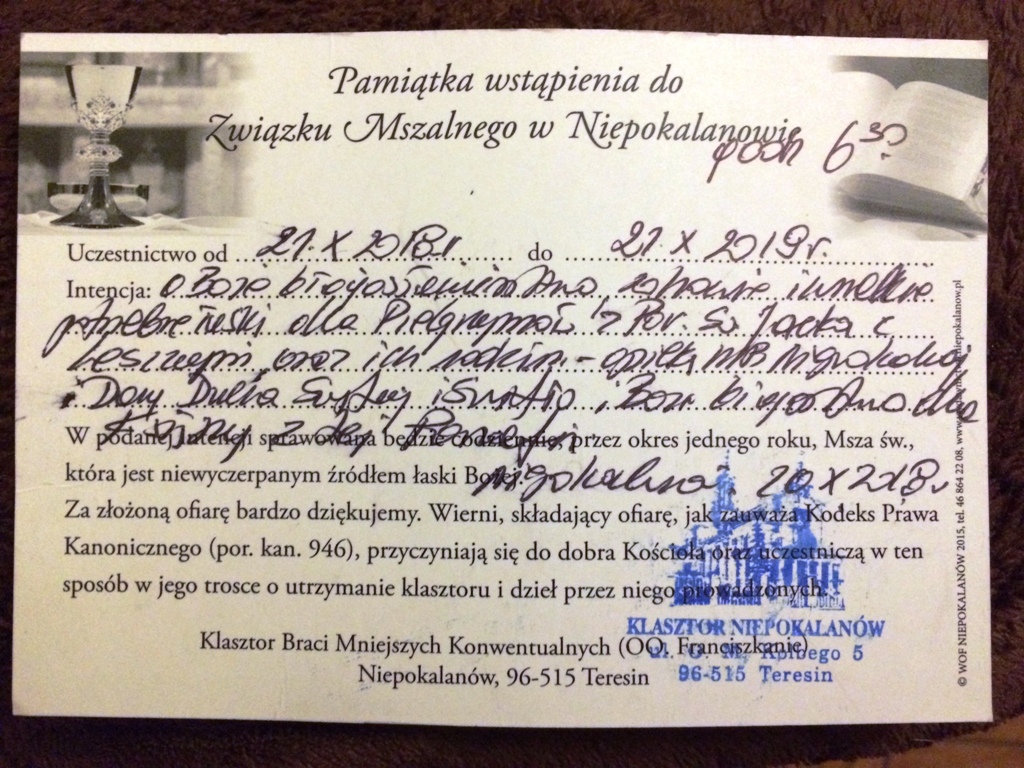 Pamiątka wstąpienia do
Związku Mszalnego w Niepokalanowie
godz 6 30
Uczestnictwo od 21. X 2018 r. do 21 X 2019 r.
Intencja: o Boże błogosławieństwo, zdrowie i wszelkie
potrzebne łaski dla Pielgrzymów z Par. Św. Jacka z
oraz ich rodzin - opiekę MB Niepokalanej
i Dary Ducha Świętego i Boże błogosławieństwo dla
W podanej intencji sprawowana będzie codziennie, przez okres jednego roku, Msza św.,
która jest niewyczerpanym źródłem łaski Bożej.
Niepokalanów. 20 X 2018 r
Za złożoną ofiarę bardzo dziękujemy. Wierni, składający ofiarę, jak zauważa Kodeks Prawa
Kanonicznego (por. kan. 946), przyczyniają się do dobra Kościoła oraz uczestniczą w ten
sposób w jego trosce o utrzymanie klasztoru i dzieł przez niego prowadzonych.
KLASZTOR NIEPOKALANÓW
Klasztor Braci Mniejszych Konwentualnych (OO. Franciszkanie)
ul. O. M. Kolbego 5
Niepokalanów, 96-515 Teresin
96-515 Teresin
© WOF NIEPOKALANÓW 2015, tel. 46 864 22 08,